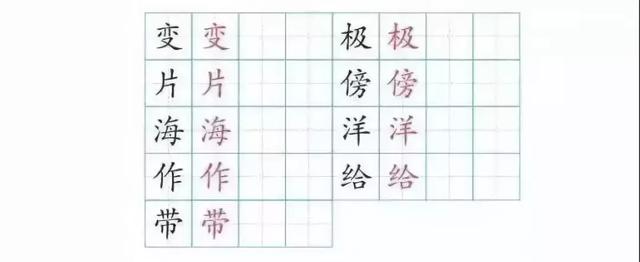 变 变 极 极
片 片 傍 傍
海 海 洋 洋
作 作 给 给
带 带